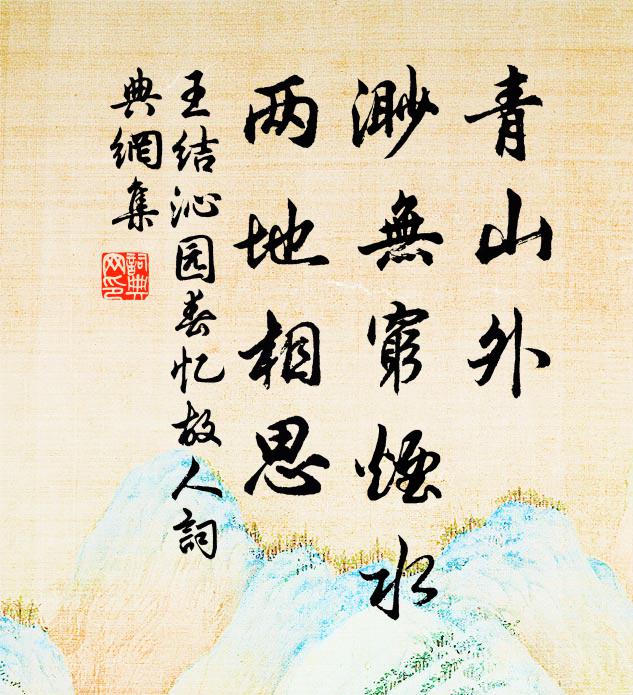 青山外
渺無窮煙水
两地相思
王结沁园春忆故人詞
典網集
詞典网印